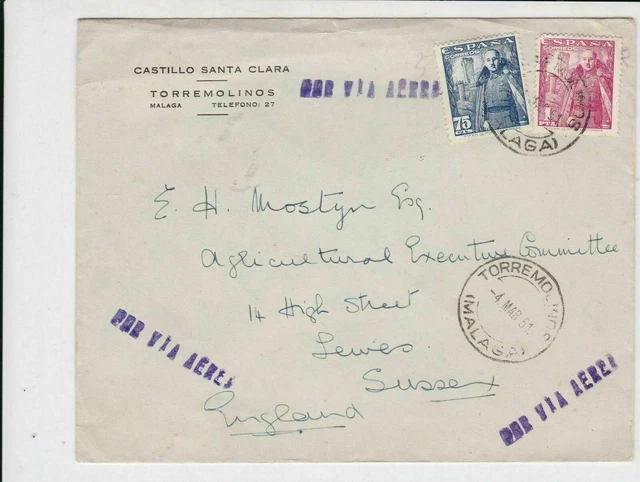 CASTILLO SANTA CLARA
TORREMOLINOS
MALAGA TELEFONO: 27
POR VIA AÉREA
ESPAÑA
CORREOS
75
CTS
ESPAÑA
CORREOS
1
PTA
E. H. Mostyn Esq.
Agricultural Executive Committee
14 High Street
Lewes
Sussex
England
TORREMOLINOS
-4 MAR 51
(MALAGA)
POR VIA AÉREA
POR VIA AÉREA